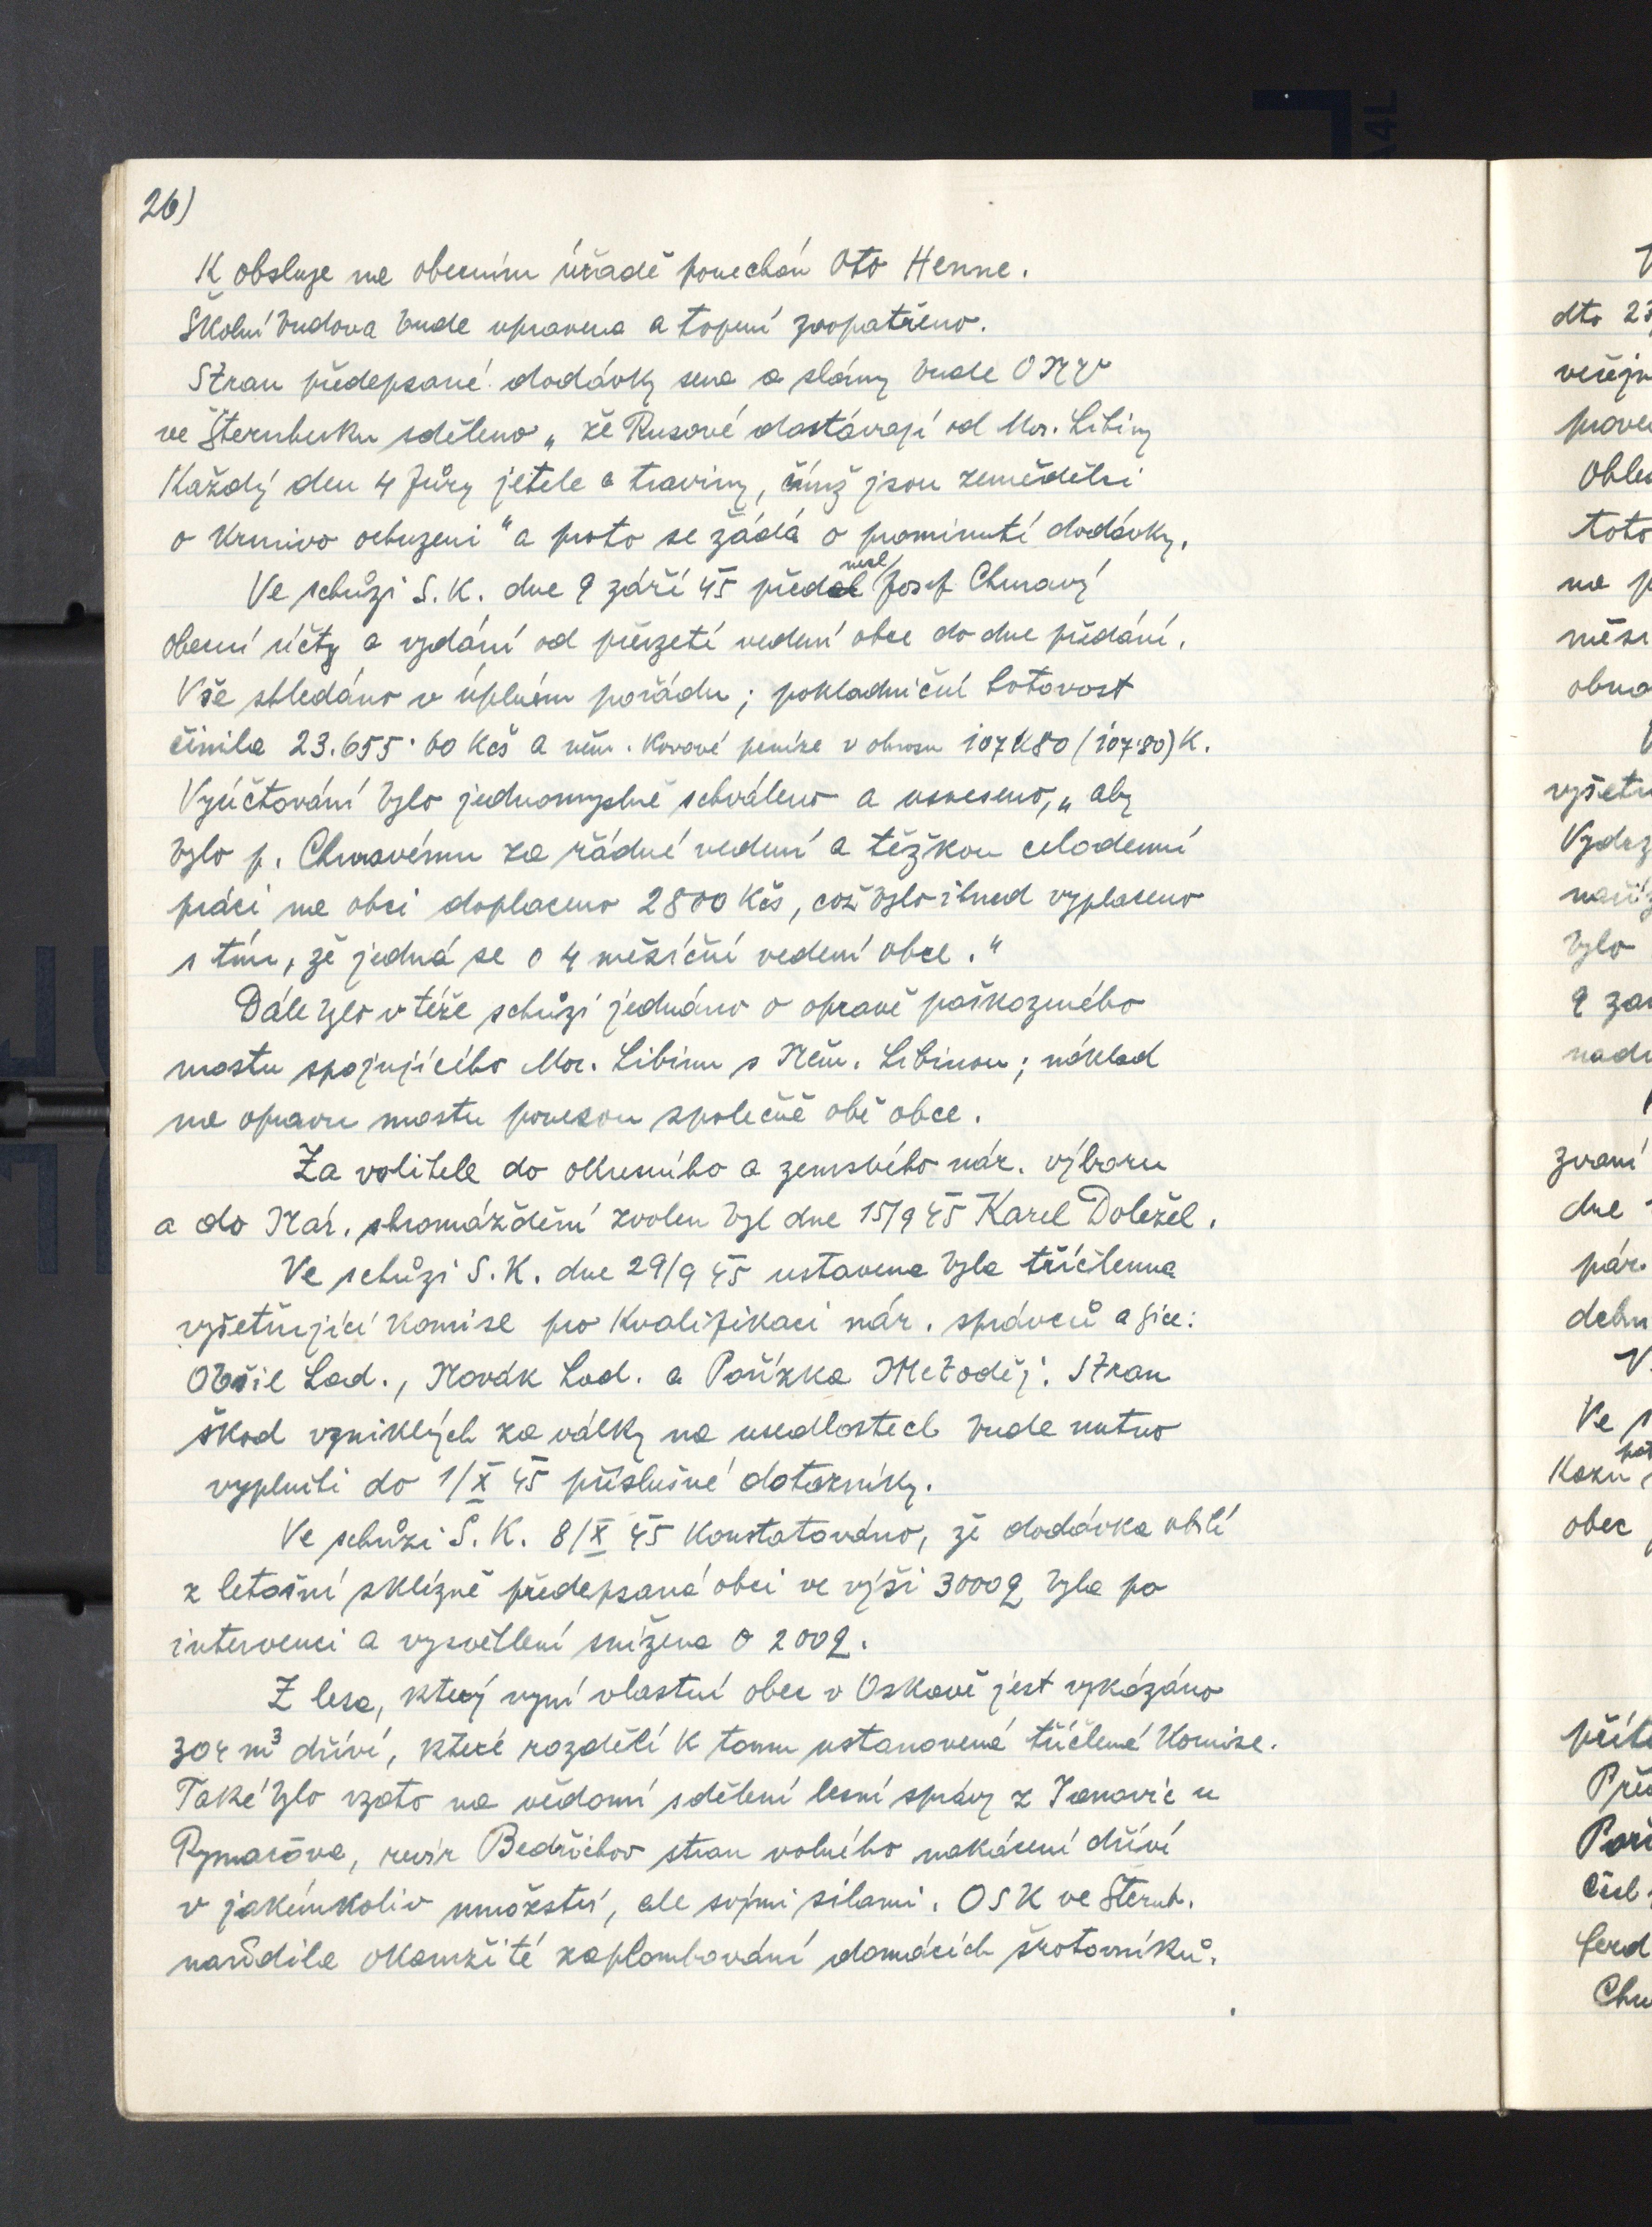 26)
K obsluze na obecním úřadě ponechán Oto Henne.
Školní budova bude upravena a topení zaopatřeno.
Stran předepsané dodávky sena a slámy bude ONV
ve Šternberku sděleno „že Rusové dostávají od Mor. Libiny
Každý den 4 fůry jetele a traviny, čímž jsou zemědělci
o krmivo ochuzeni" a proto se žádá o prominutí dodávky.
Ve schůzi S.K. dne 9 září 45 předal Josef Chmavý
obecní účty a vydání od převzetí vedení obce do dne předání.
Vše shledáno v úplném pořádku; pokladniční hotovost
činila 23.655·60 Kčs a něm. kovové peníze v obnosu 107K80 (107·80)K.
Vyúčtování bylo jednomyslně schváleno a usneseno, „aby
bylo p. Chmavému za řádné vedení a těžkou celodenní
práci na obci doplaceno 2800 Kčs, což bylo ihned vyplaceno
s tím, že jedná se o 4 měsíční vedení obce."
Dále bylo v téže schůzi jednáno o opravě poškozeného
mostu spojujícího Mor. Libinu s Něm. Libinou; náklad
na opravu mostu ponesou společně obě obce.
Za volitele do okresního a zemského nár. výboru
a do Nár. shromáždění zvolen byl dne 15/9 45 Karel Doležel.
Ve schůzi S.K. dne 29/9 45 ustavena byla tříčlenná
vyšetřující komise pro kvalifikaci nár. správců a sice:
Obšil Lad., Novák Lad. a Pořízka Metoděj. Stran
škod vzniklých za války na usedlostech bude nutno
vyplniti do 1/X 45 příslušné dotazníky.
Ve schůzi S.K. 8/X 45 konstatováno, že dodávka obilí
z letošní sklizně předepsaná obci ve výši 3000q byla po
intervenci a vysvětlení snížena o 200q.
Z lesa, který nyní vlastní obec v Oskavě jest vykázáno
304 m³ dříví, které rozdělí k tomu ustanovená tříčlená komise.
Také bylo vzato na vědomí sdělení lesní správy z Janovic u
Rymařova, revír Bedřichov stran volného nakácení dříví
v jakémkoliv množství, ale svými silami. OSK ve Šternb.
nařídila okamžité zaplombování domácích šrotovníků.